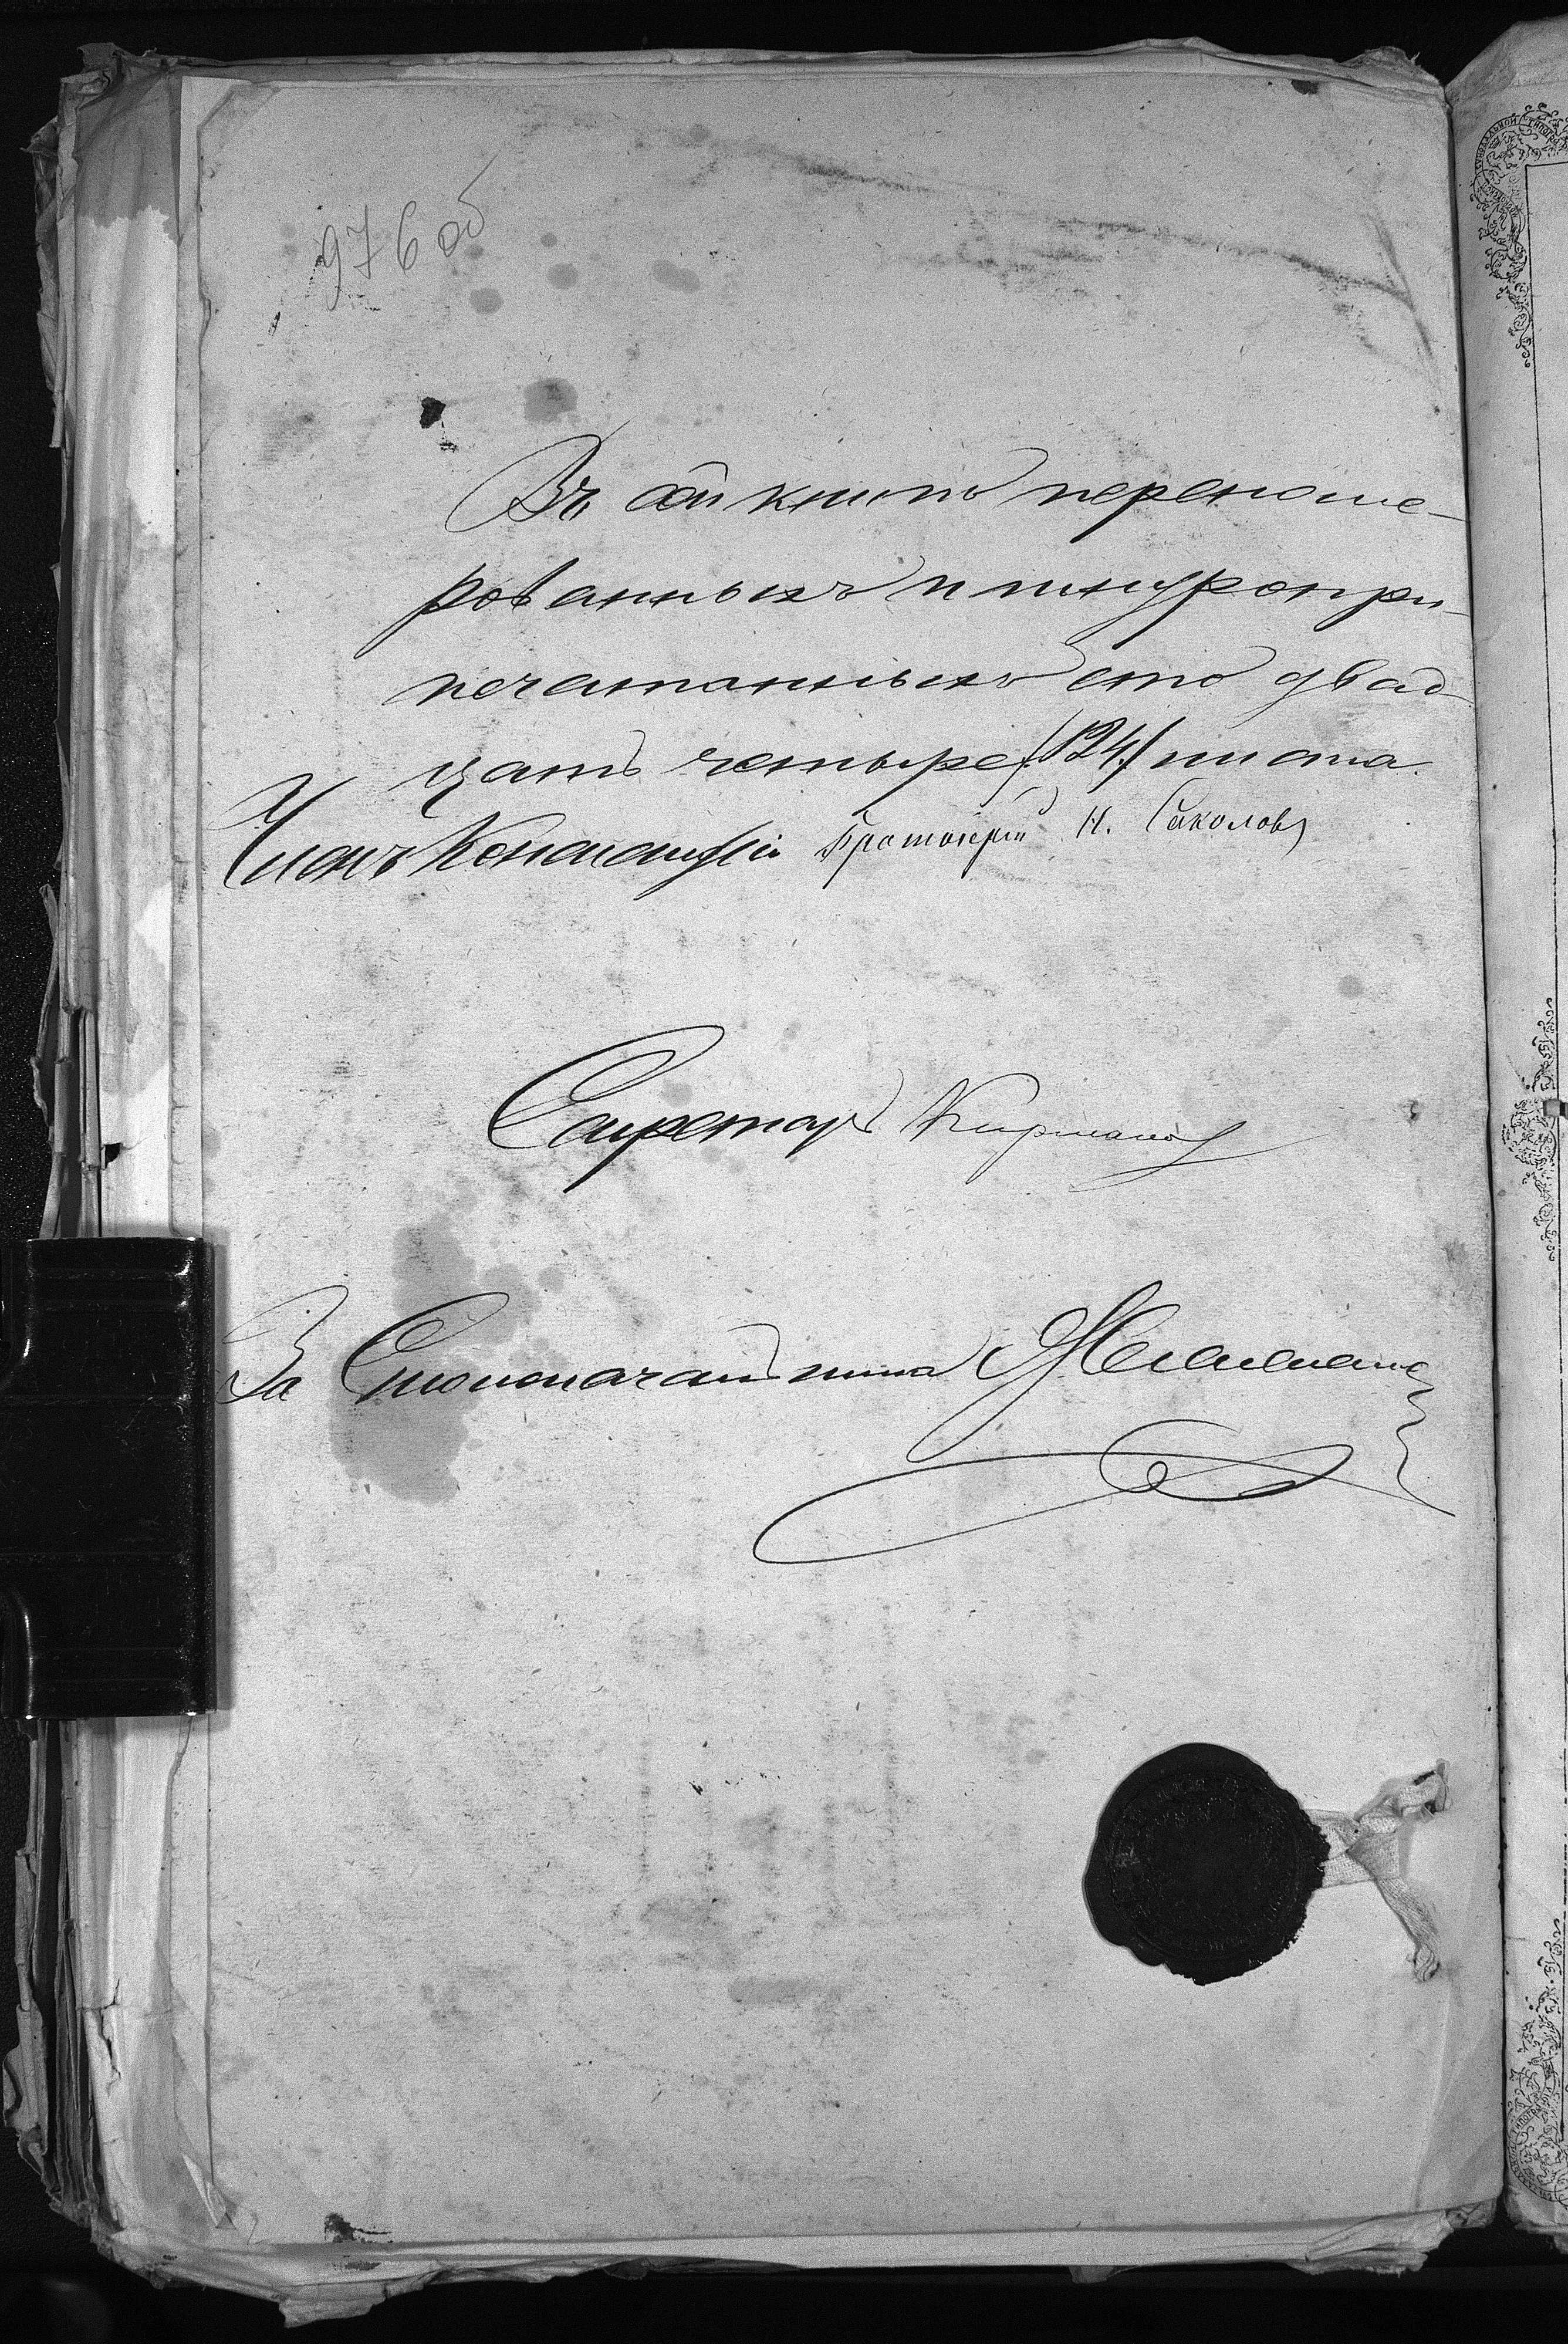 976 об
Въ сей книгѣ перенуме-
рованныхъ и шнуропри-
печатанныхъ сто двад-
цать четыре /124/ листа.
Членъ Консисторіи Протоіерей Н. Соколовъ
Секретарь
За Столоначальника